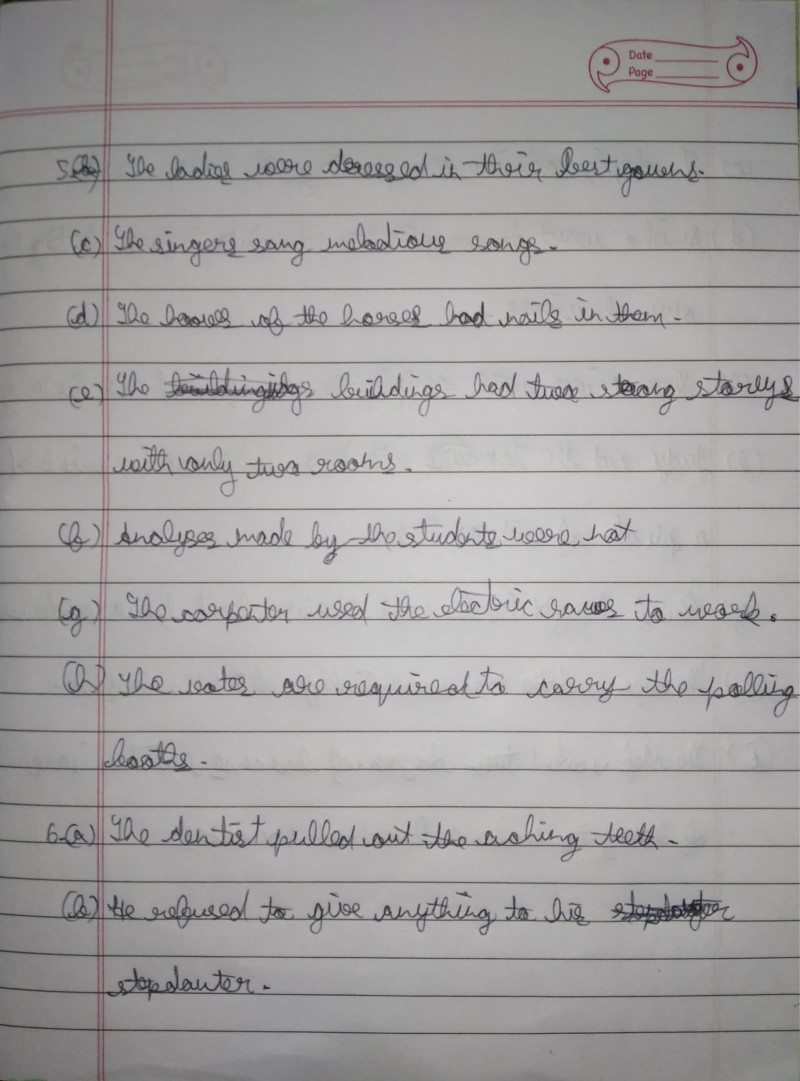 Date
Page
5.(b) The ladies were deressed in their best gouens.
(c) The singers sang melodious songs.
(d) The of the horses had nails in them.
(e) The buildings had two storlys
with only two rooms.
(f) Analyses made by the students were not
(g) The carpenter used the electric saws to work.
(h) The are required to carry the polling
booths.
6.(a) The dentist pulled out the aching teeth.
(b) He refused to give anything to his
stepdauter.